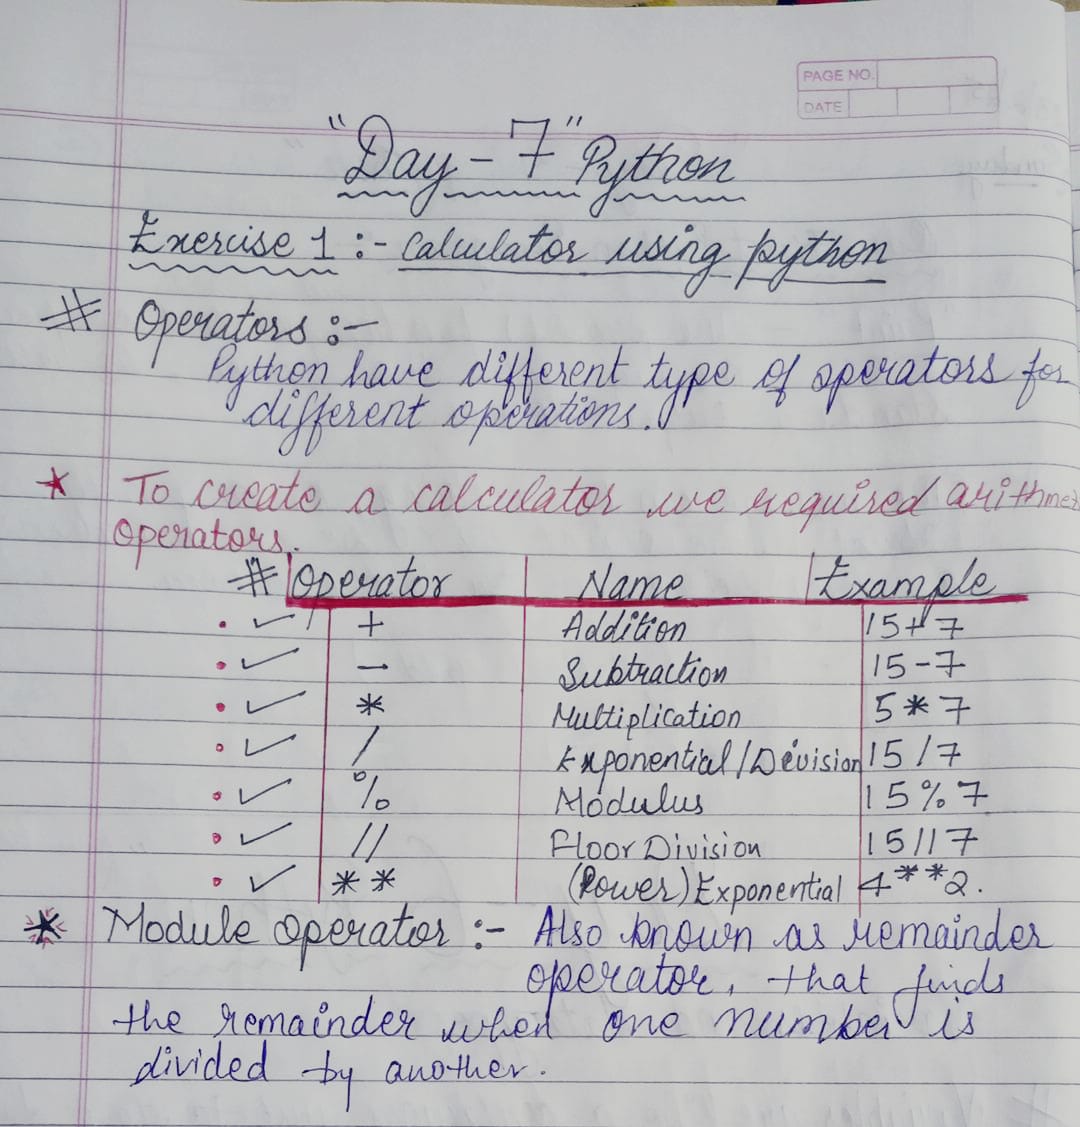 PAGE NO.
DATE
"Day - 7" Python
Exercise 1 :- calculator using python
# Operators :-
Python have different type of operators for
different operations.
* To create a calculator we required arithmet
operators.
# Operator Name Example
• ✓ + Addition 15+7
• ✓ - Subtraction 15-7
• ✓ * Multiplication 5*7
• ✓ / Exponential/Division 15/7
• ✓ % Modulus 15%7
• ✓ // Floor Division 15//7
• ✓ ** (Power) Exponential 4**2.
* Module operator :- Also known as remainder
operator, that finds
the remainder when one number is
divided by another.